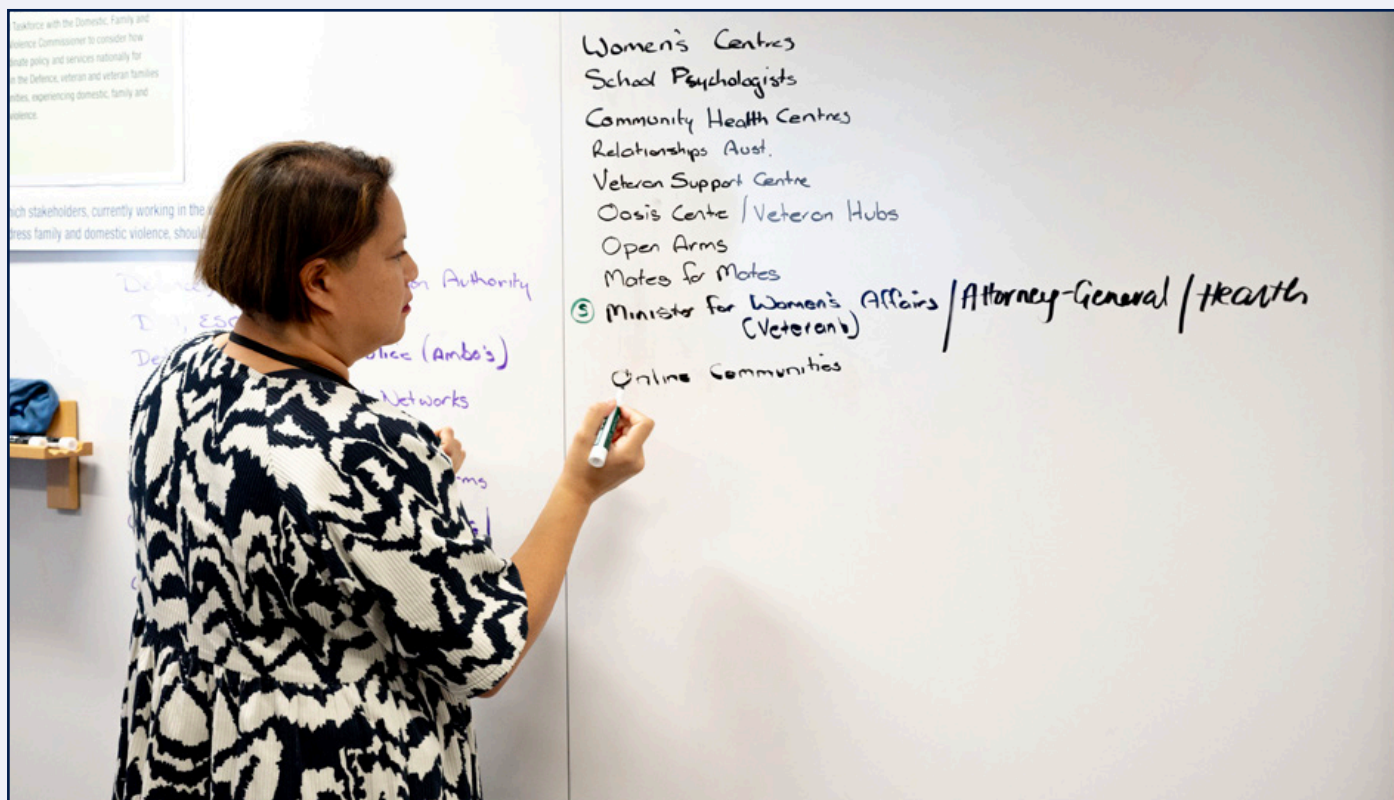 Taskforce with the Domestic, Family and
Violence Commissioner to consider how
policy and services nationally for
the Defence, veteran and veteran families
experiencing domestic, family and
violence.
stakeholders, currently working in the
family and domestic violence,
Authority
(Ambo's)
Networks
Women's Centres
School Psychologists
Community Health Centres
Relationships Aust.
Veteran Support Centre
Oasis Cente / Veteran Hubs
Open Arms
Mates for Mates
S Minister for Women's Affairs / Attorney-General / Health
(Veteran's)
Online Communities